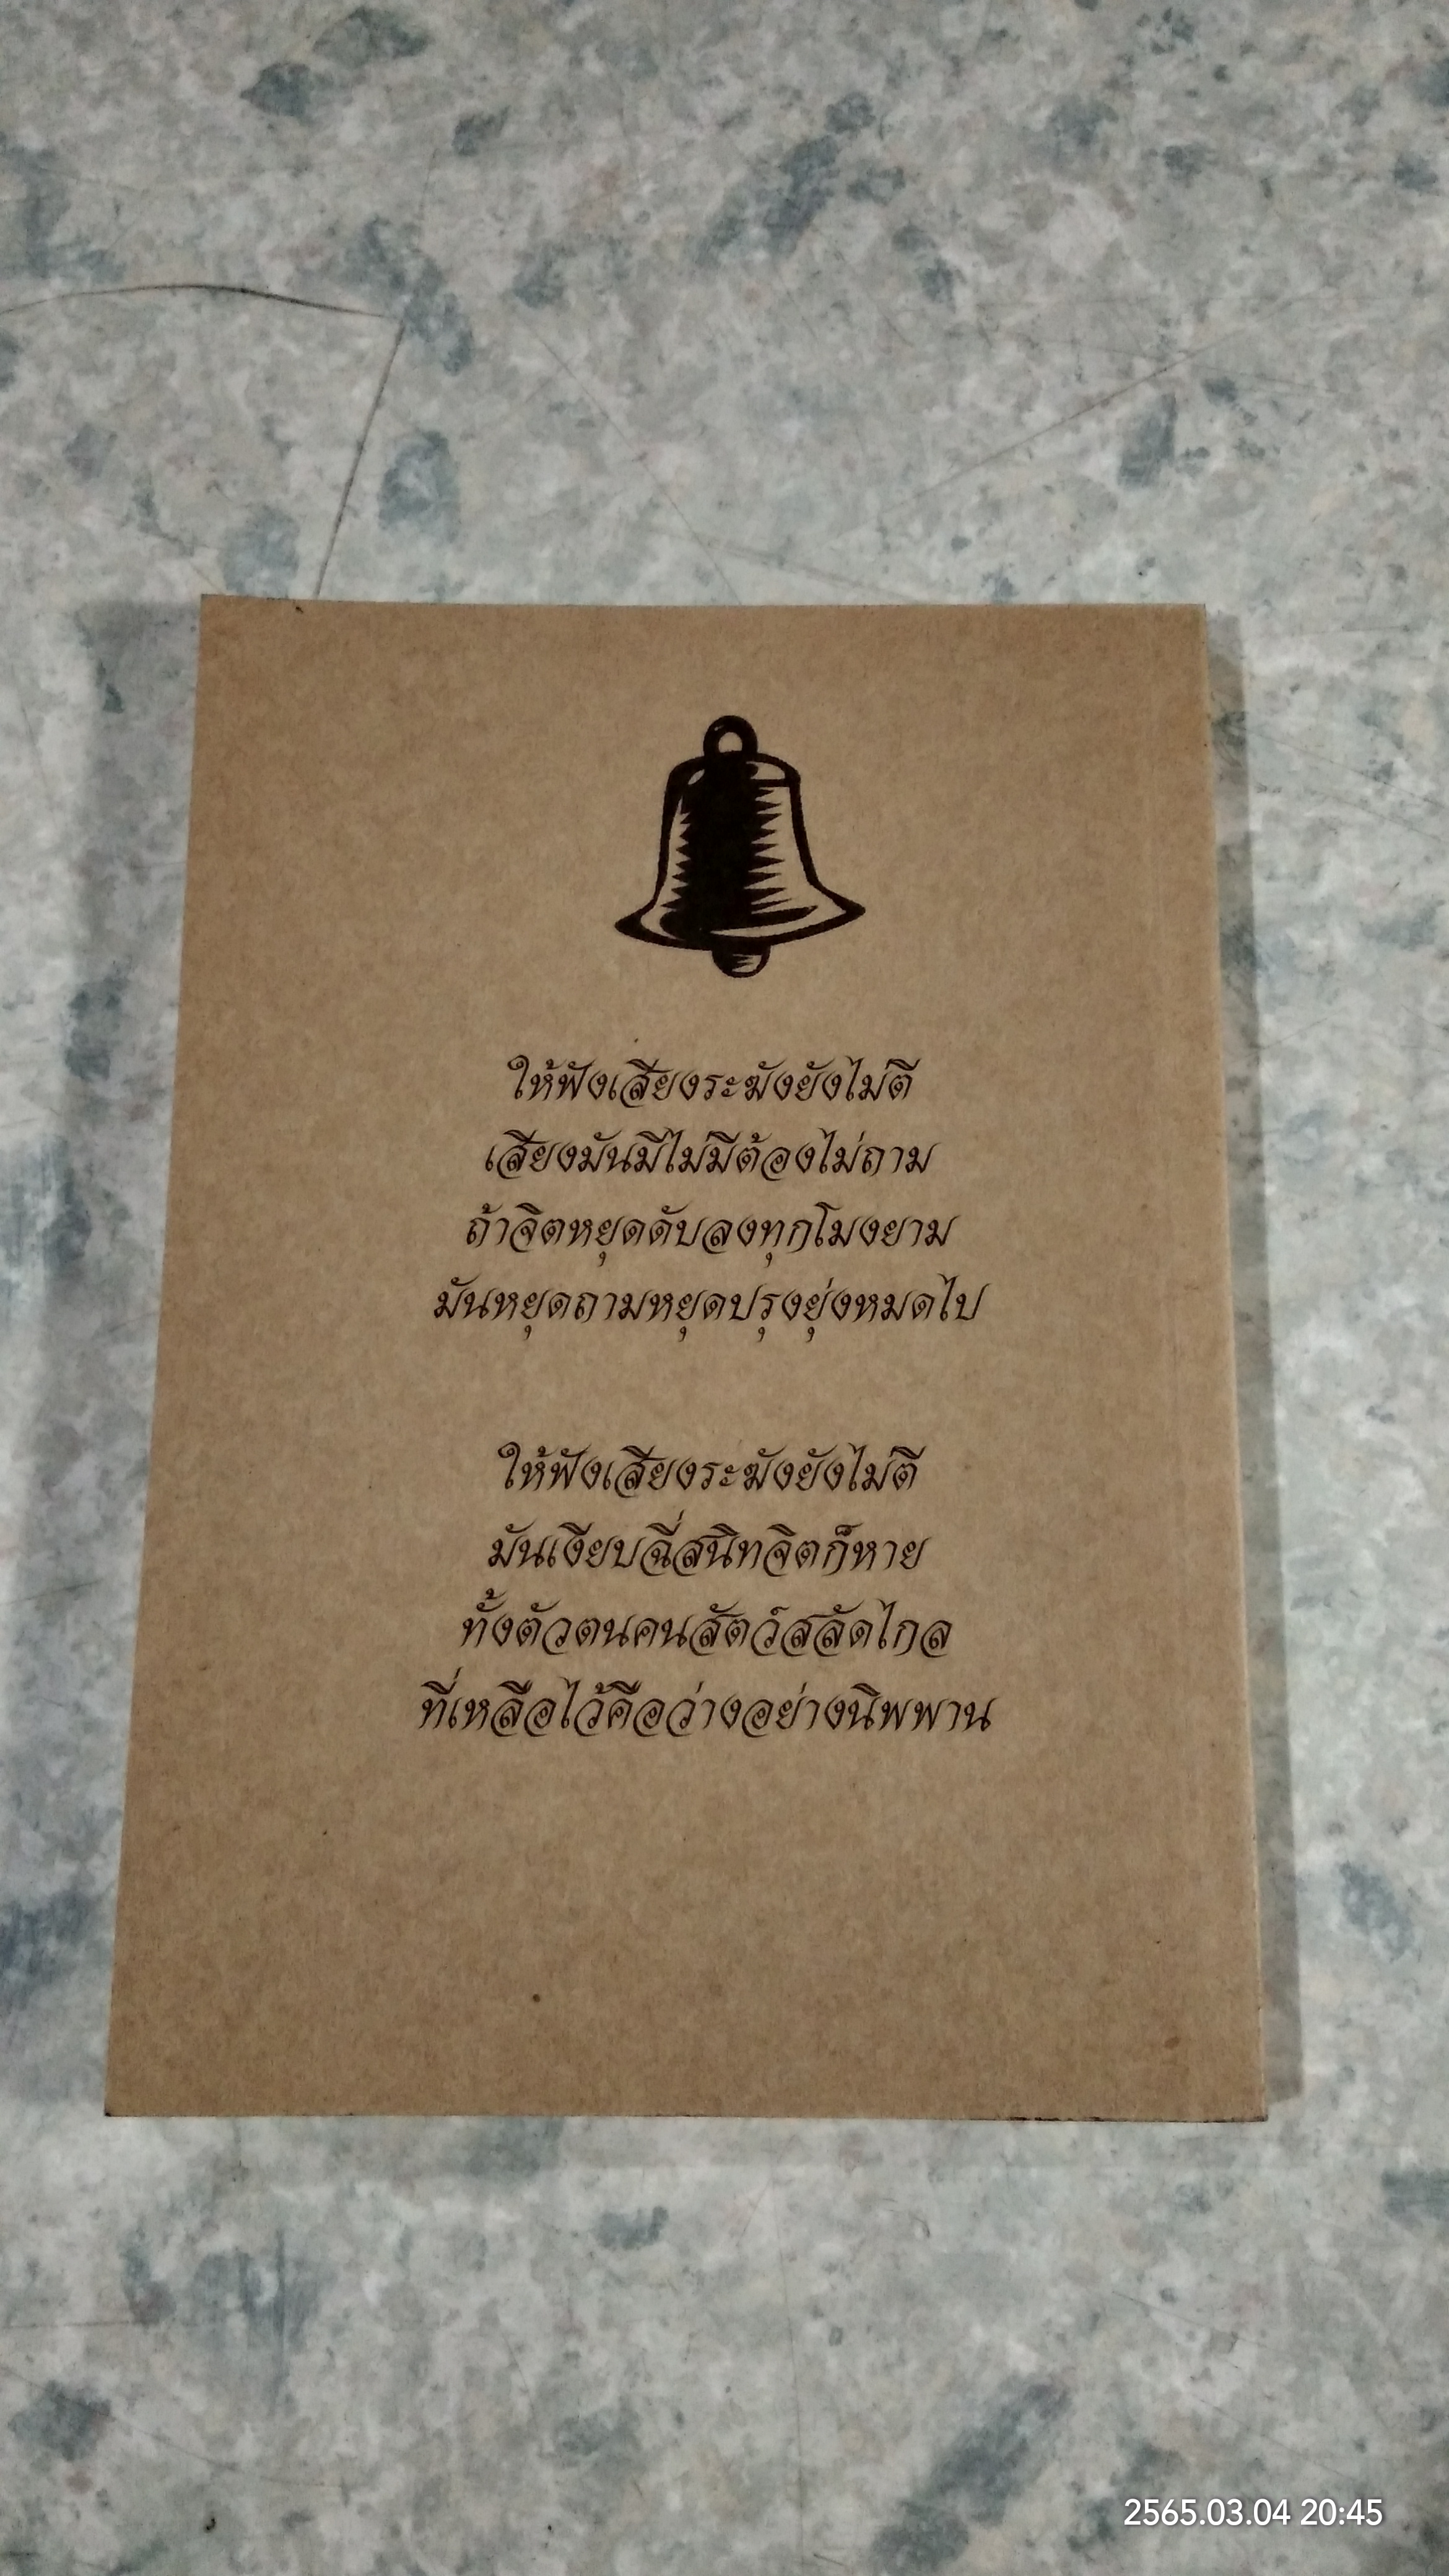 ให้ฟังเสียงระฆังยังไม่ตี
เสียงมันมีไม่มีต้องไม่ถาม
ถ้าจิตหยุดดับลงทุกโมงยาม
มันหยุดถามหยุดปรุงยุ่งหมดไป
ให้ฟังเสียงระฆังยังไม่ตี
มันเงียบฉี่สนิทจิตก็หาย
ทั้งตัวตนคนสัตว์สลัดไกล
ที่เหลือไว้คือว่างอย่างนิพพาน
2565.03.04 20:45